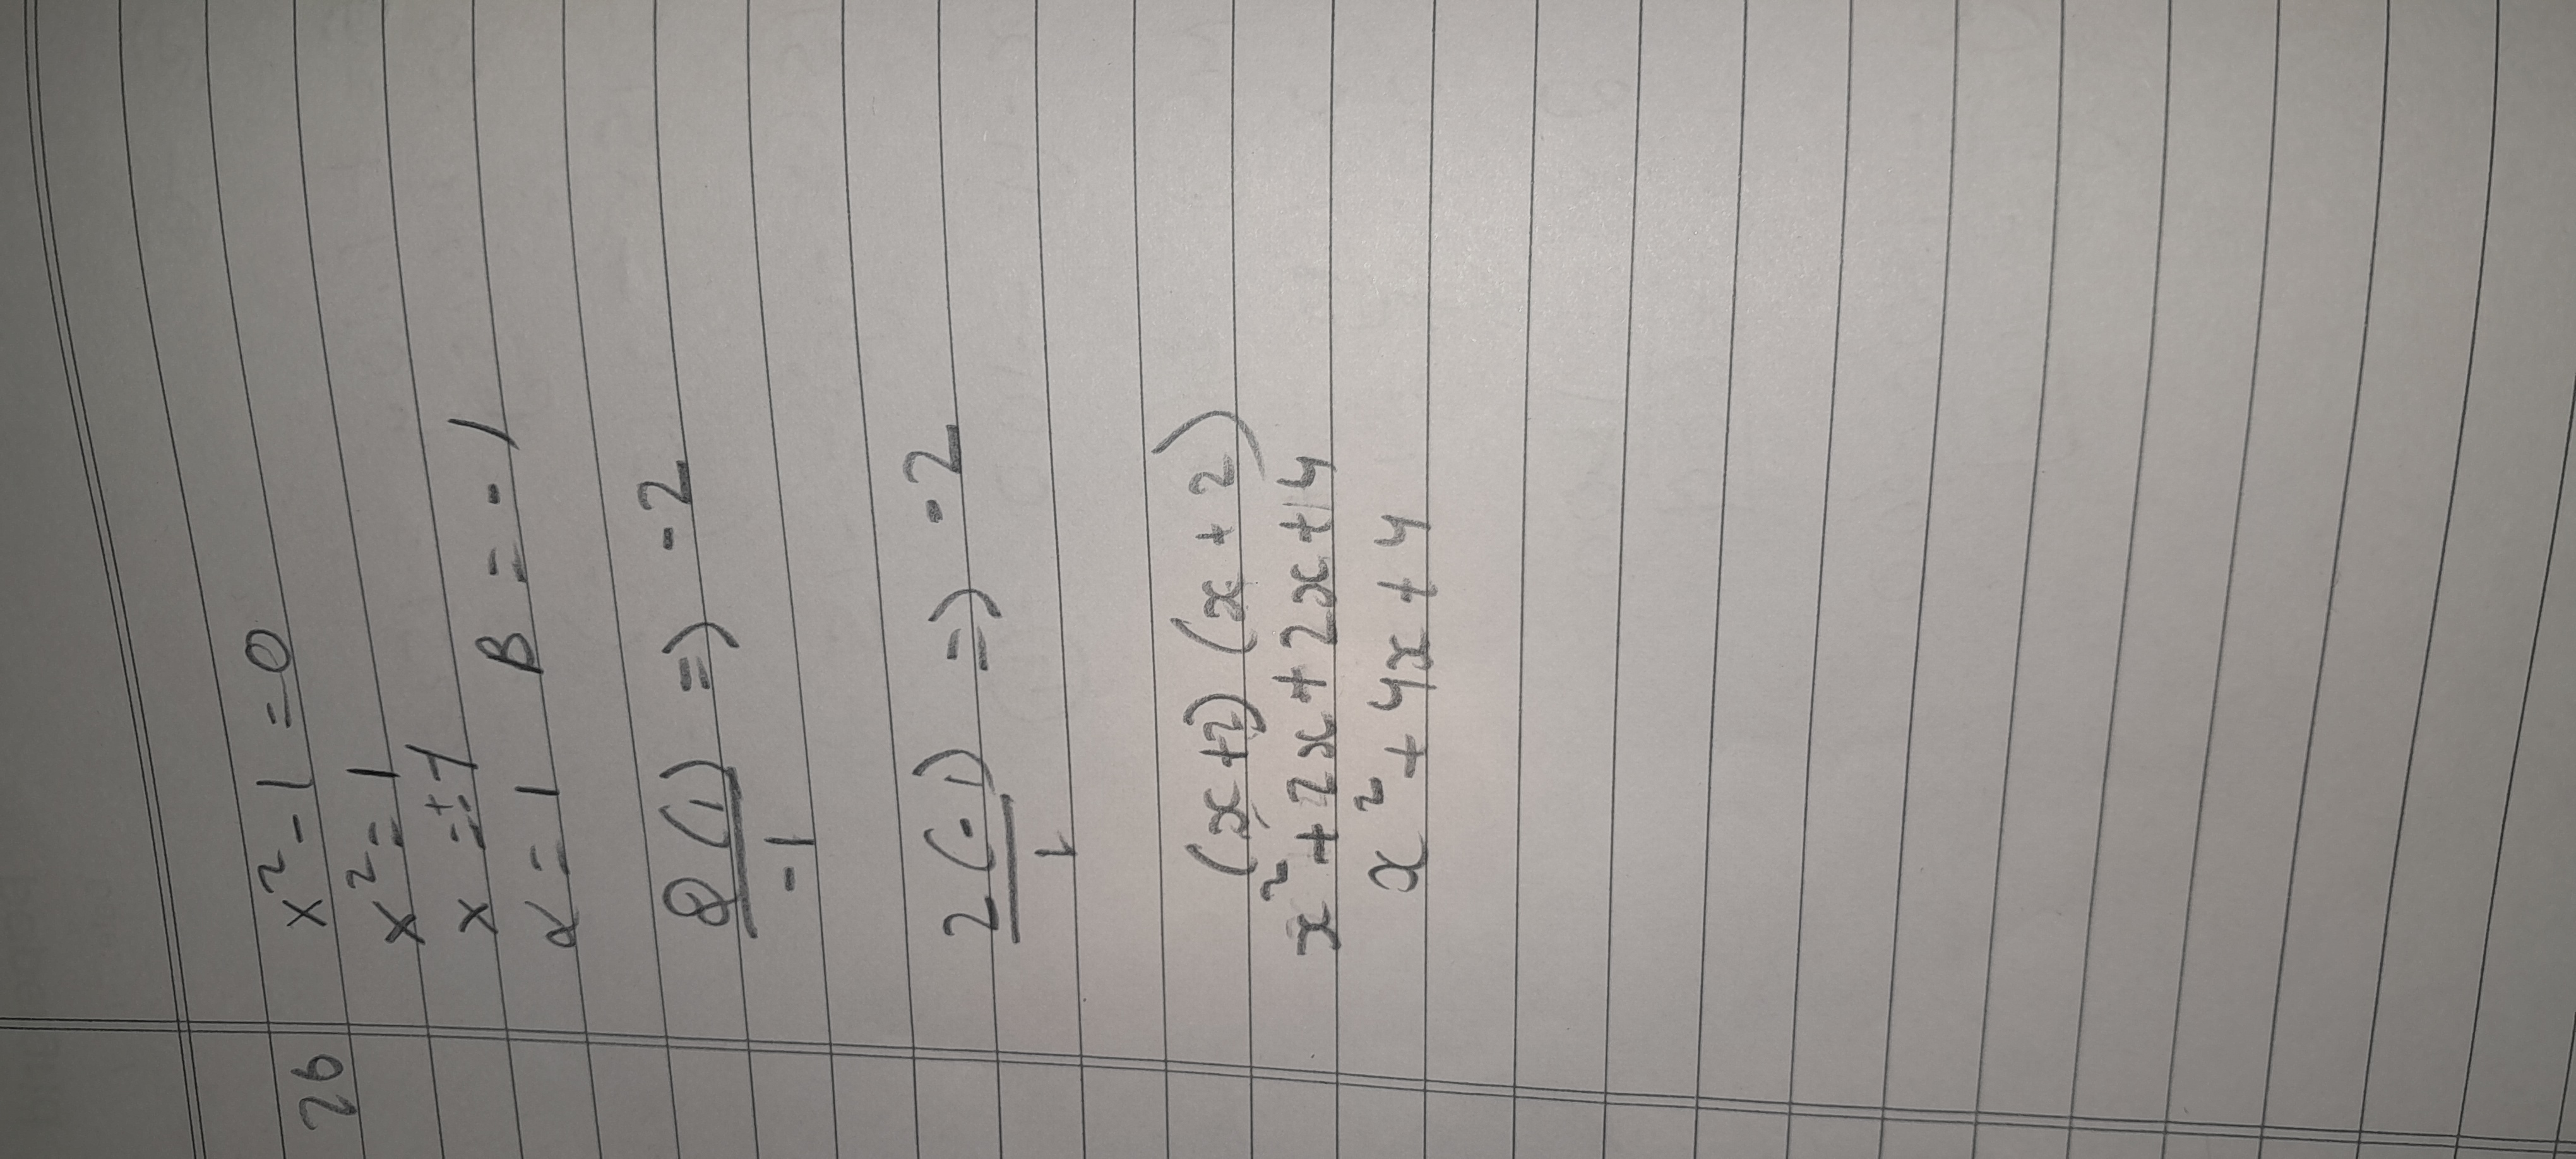 26 x² - 1 = 0
x² = 1
x = ± 1
α = 1 B = -1
2(1) => -2
-1
2(-1) => -2
1
(x+2) (x+2)
x² + 2x + 2x + 4
x² + 4x + 4